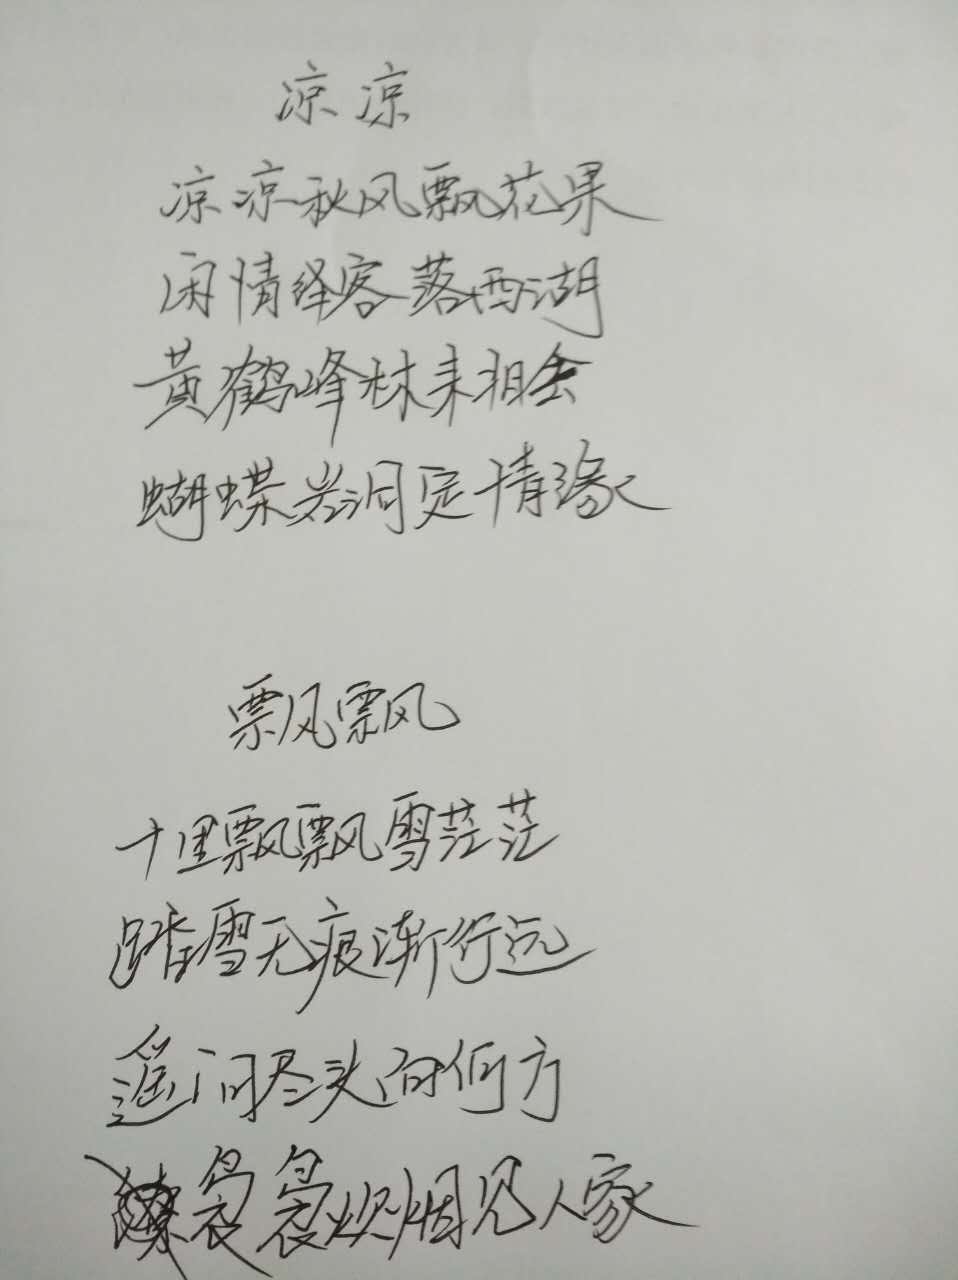 凉凉
凉凉秋风飘花果
闲情绎客落西湖
黄鹤峰林来相会
蝴蝶岩洞定情缘
飘飘
十里飘飘雪茫茫
踏雪无痕渐行远
遥问尽头向何方
袅袅炊烟见人家